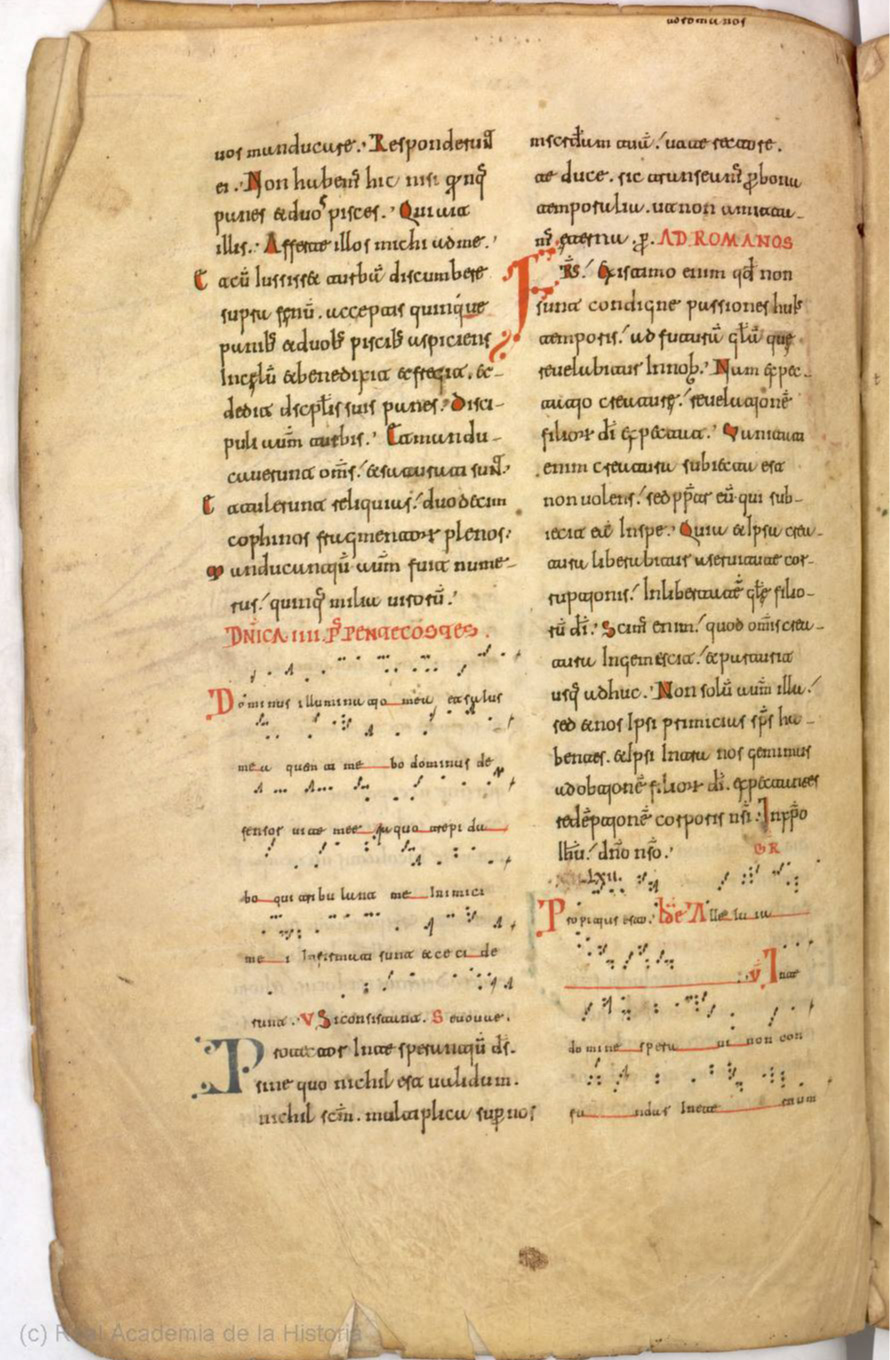 uos manducare. Responderunt
ei. Non habem' hic nisi qnq;
panes & duos pisces. Qui ait
illis. Afferte illos michi adme.
Et cū iussiss& turbā discumbere
supra fęnū. acceptis quinque
panib; & duob; piscib; aspiciens
In cęlū & benedixit & fregit. &
dedit discplis suis panes. Disci-
puli autē turbis. Et mandu-
cauerunt oms. & saturati sunt.
Et tulerunt reliquias. duodecim
cophinos fragmentorum plenos.
Manducantiū autē fuit nume-
rus. quinq; milia uirorū.
DNICA IIII P' PENTECOSTES.
Dominus illuminatio mea et salus
mea quem time bo dominus de
fensor uite mee a quo trepi da
bo qui tribu lant me Inimici
me i Infirmati sunt & ce ci de
runt. V Si consistant. Seuouae.
Protector Inte sperantiū ds.
sine quo nichil est ualidum.
nichil scm. multiplica sup nos
mscrdiam tuā. ut te rectore.
te duce. sic transeam' p bona
temporalia. ut non amitta-
m' eterna. p. AD ROMANOS
FRS. Existimo enim qd non
sunt condigne passiones huius
temporis. ad futurā glām quę
reuelabitur In nob. Nam expec-
tatio creaturę. reuelationē
filior di expectat. Vanitati
enim creatura subiecta est
non uolens. sed pptr eū qui sub-
iecit eā Inspe. Quia & Ipsa crea-
tura liberabitur a seruitute cor-
ruptionis. In libertatē glę filio-
rū di. Scim' enim. quod omis crea-
tura Ingemescit. & parturit
usq; adhuc. Non solū autē illa.
sed & nos Ipsi primicias sps ha-
bentes. & Ipsi Intra nos gemimus
adobtionē filior di. expectantes
redēptionē corporis nri. In xpo
Ihu. dno nro. GR
LXII.
Propitius esto. Alle lu ia
V In te
domine spera ui non con
fu ndar Ineter enum
(c) Real Academia de la Historia